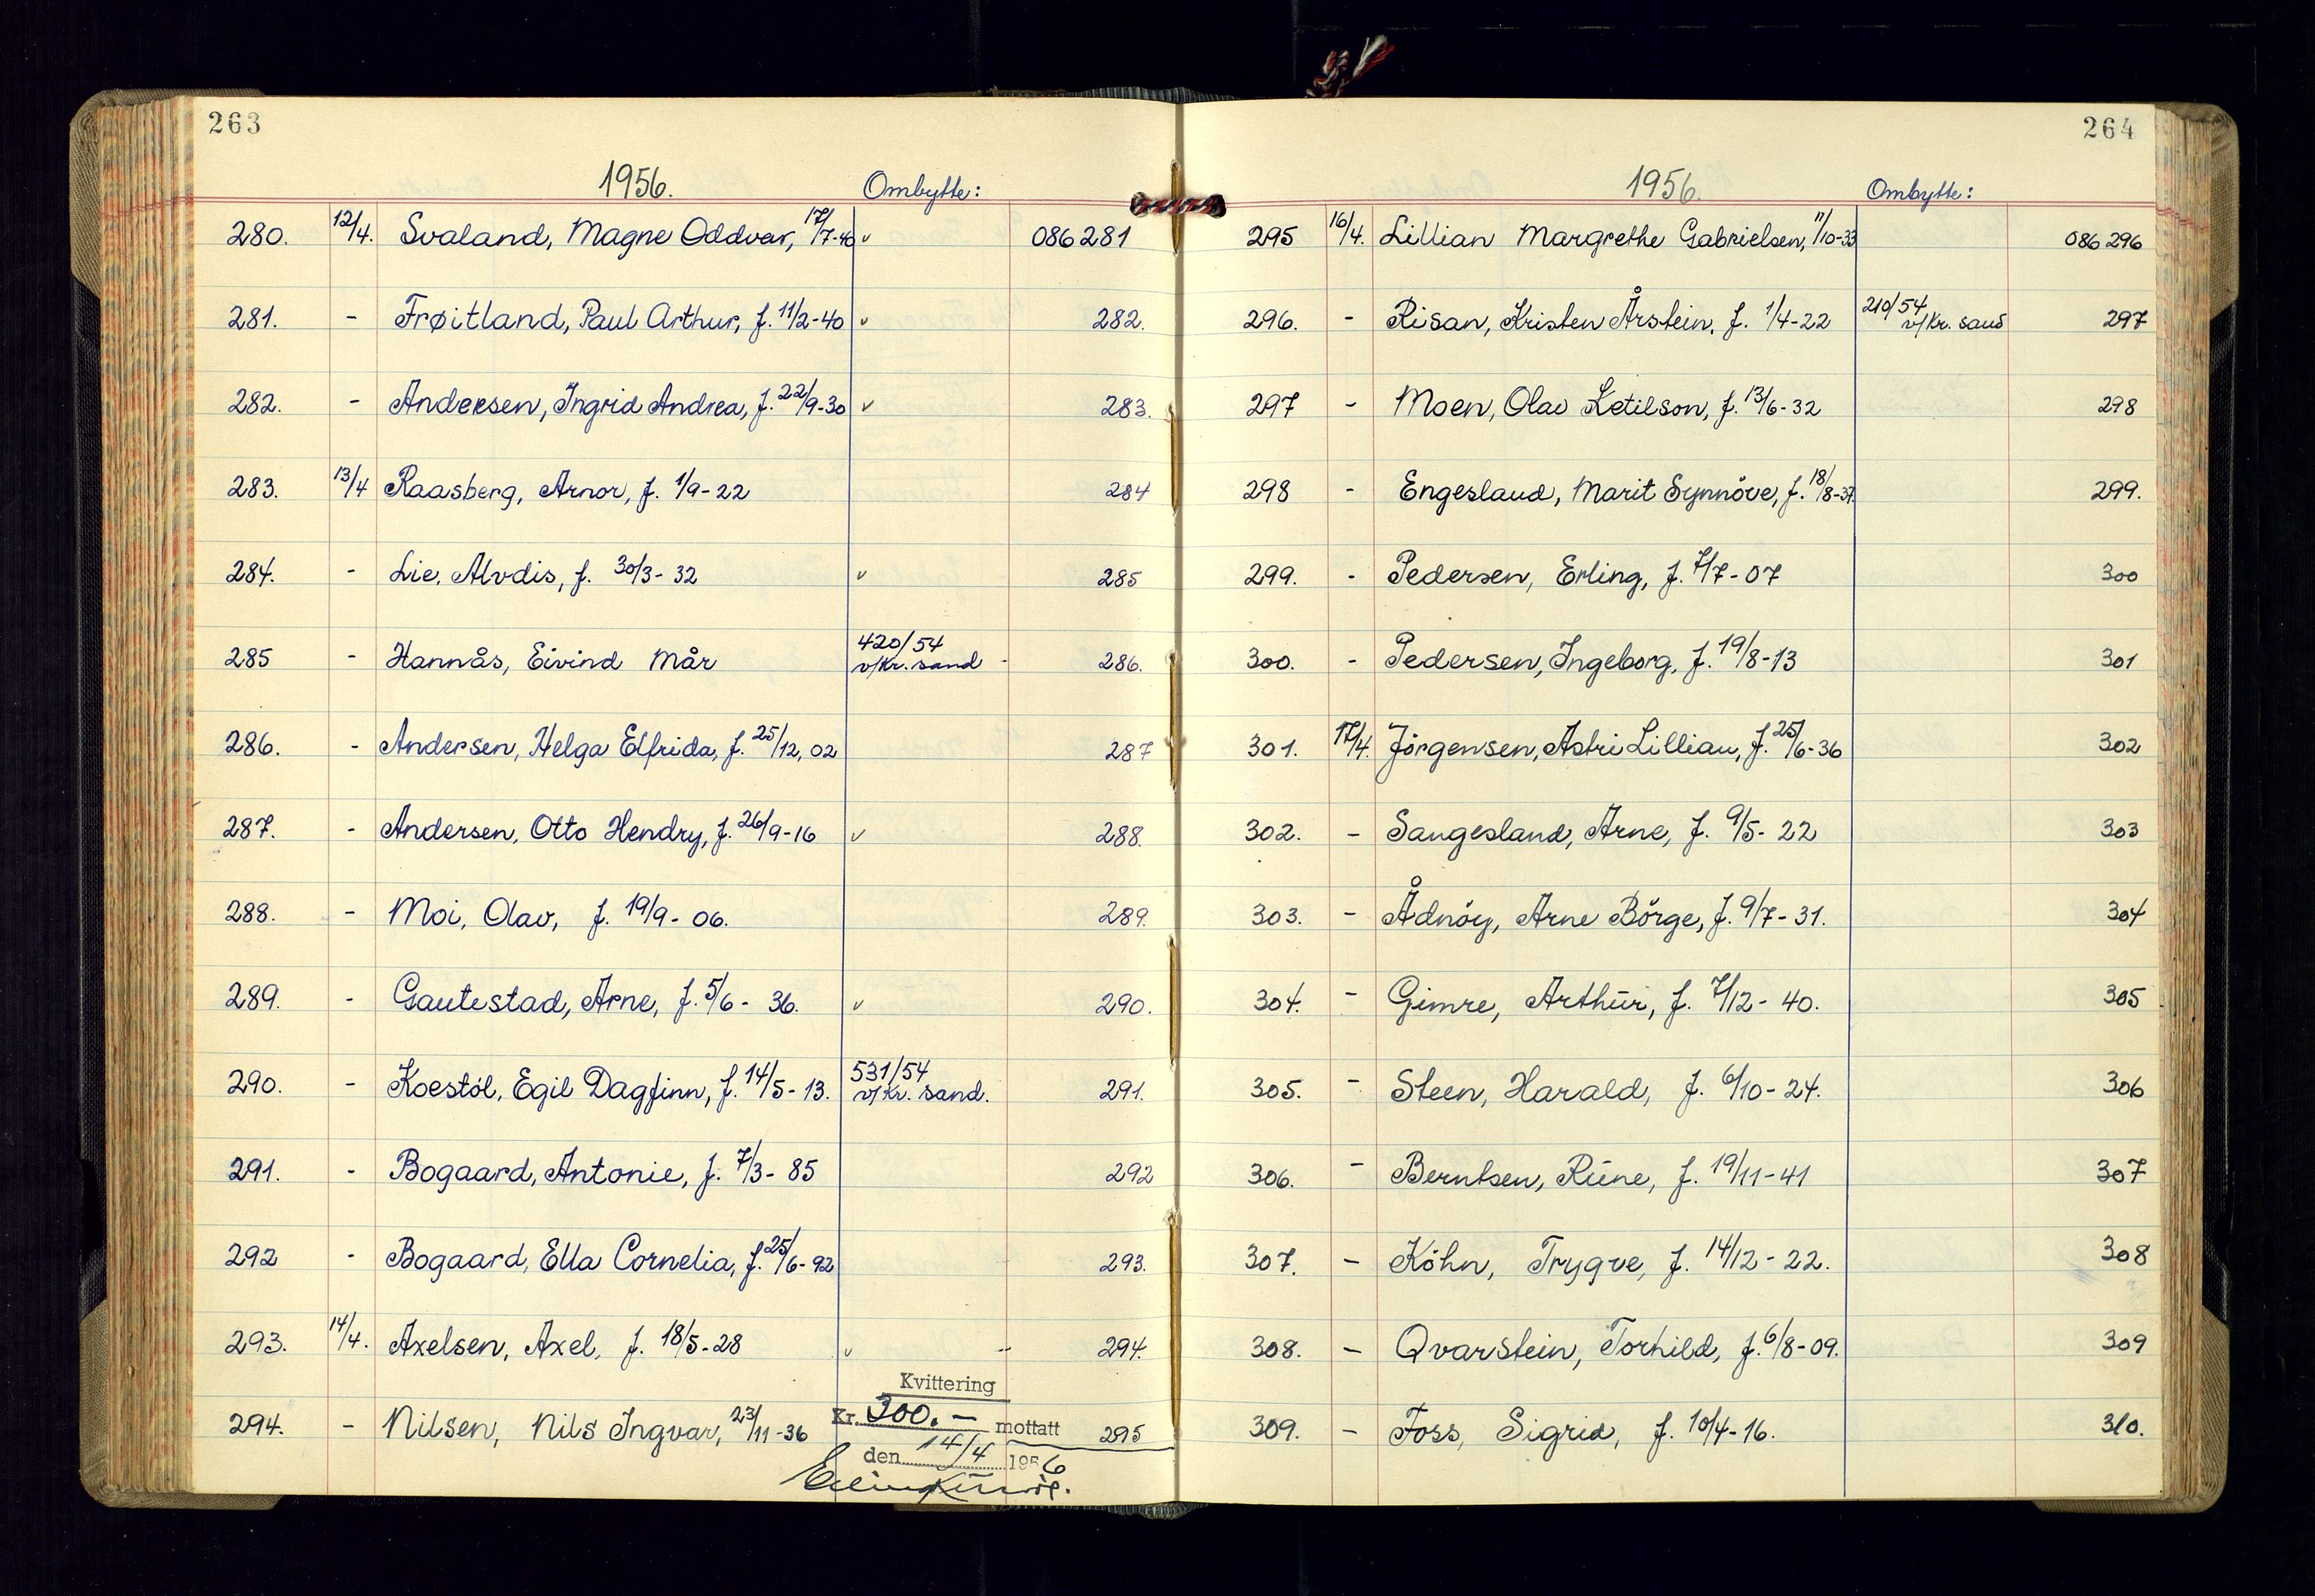 263
1956. Ombytte:
280. 12/4. Svaland, Magne Oddvar, 17/7-40 v 086281
281. - Frøitland, Paul Arthur, f. 11/2-40 v 282.
282. - Andersen, Ingrid Andrea, f. 22/9-30 v 283.
283. 13/4 Raasberg, Arnor, f. 1/9-22 284
284. - Lie, Alvdis, f. 30/3-32 v 285
285 - Hannås, Eivind Mår 420/54 v/Kr.sand - 286.
286. - Andersen, Helga Elfrida, f. 25/12, 02 287
287. - Andersen, Otto Hendry, f. 26/9-16 v 288.
288. - Moi, Olav, f. 19/9-06. 289.
289. - Gautestad, Arne, f. 5/6-36. v 290.
290. - Koestöl, Egil Dagfinn, f. 14/5-13. 531/54 v/Kr.sand. 291.
291. - Bogaard, Antonie, f. 7/3-85 292
292 - Bogaard, Ella Cornelia, f. 25/6-92 293.
293. 14/4. Axelsen, Axel, f. 18/5-28 v - 294.
294. - Nilsen, Nils Ingvar, 23/11-36 295
Kvittering
Kr. 300.- mottatt
den 14/4 1956
264
1956. Ombytte:
295 16/4. Lillian Margrethe Gabrielsen, 11/10-33 086296
296. - Risan, Kristen Årstein, f. 1/4-22 210/54 v/Kr.sand 297
297 - Moen, Olav Ketilson, f. 13/6-32 298
298 - Engesland, Marit Synnöve, f. 18/8-37. 299.
299. - Pedersen, Erling, f. 7/7-07 300
300. - Pedersen, Ingeborg, f. 19/8-13 301
301. 17/4. Jörgensen, Astri Lillian, f. 25/6-36 302
302. - Sangesland, Arne, f. 9/5-22 303
303. - Ådnöy, Arne Börge, f. 9/7-31. 304
304. - Gimre, Arthur, f. 7/12-40. 305
305. - Steen, Harald, f. 6/10-24. 306
306. - Berntsen, Rune, f. 19/11-41 307
307. - Köhn, Trygve, f. 14/12-22. 308
308. - Qvarstein, Torhild, f. 6/8-09. 309
309. - Foss, Sigrid, f. 10/4-16. 310.